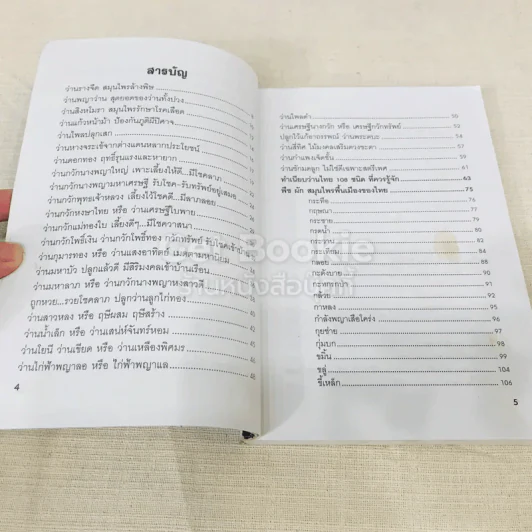 สารบัญ
ว่านรางจืด สมุนไพรล้างพิษ
ว่านพญาว่าน สุดยอดของว่านทั้งปวง
ว่านสิงหโมรา สมุนไพรรักษาโรคเลือด
ว่านแก้วหน้าม้า ป้องกันภูตผีปีศาจ
ว่านไพลปลุกเสก
ว่านหางจระเข้จากต่างแดนหลากประโยชน์
ว่านดอกทอง ฤทธิ์รุนแรงและหายาก
ว่านกวักนางพญาใหญ่ เพาะเลี้ยงให้ดี...มีโชคลาภ
ว่านกวักนางพญามหาเศรษฐี รับโชค-รับทรัพย์อยู่เสมอ
ว่านกวักพุทธเจ้าหลวง เลี้ยงไว้โชคดี...มีลาภลอย
ว่านกวักหงษาไทย หรือ ว่านเศรษฐีใบพาย
ว่านกวักแม่ทองใบ เลี้ยงดีๆ...มีโชควาสนา
ว่านกวักโพธิ์เงิน ว่านกวักโพธิ์ทอง กวักทรัพย์ รับโชคเข้า
ว่านกุมารทอง หรือ ว่านแสงอาทิตย์ เมตตามหานิยม
ว่านมหาบัว ปลูกแล้วดี มีสิริมงคลเข้าบ้านเรือน
ว่านมหาลาภ หรือ ว่านกวักนางพญาหงสาวดี
ถูกหวย...รวยโชคลาภ ปลูกว่านลูกไก่ทอง
ว่านสาวหลง หรือ ฤษีผสม ฤษีสร้าง 40
ว่านน้ำเล็ก หรือ ว่านเสน่ห์จันทร์หอม 42
ว่านโยนี ว่านเขียด หรือ ว่านเหลืองพิศมร 44
ว่านไก่ฟ้าพญาลอ หรือ ไก่ฟ้าพญาแล 48
4
ว่านไพลดำ 50
ว่านเศรษฐีนางกวัก หรือ เศรษฐีกวักทรัพย์ 52
ปลูกไว้แก้อาถรรพณ์ ว่านพระตบะ 54
ว่านสี่ทิศ ไม้มาคลเสริมดวงชะตา 57
ว่านกำแพงเจ็ดชั้น 59
ว่านชักมดลูก ไม่ใช่ดีเฉพาะสตรีเพศ 61
ทำเนียบว่านไทย 108 ชนิด ที่ควรรู้จัก 63
พืช ผัก สมุนไพรพื้นเมืองของไทย 75
กระทือ 76
กฤษณา 77
กระชาย 79
กรดน้ำ 80
กระวาน 82
กระเทียม 84
กลอย 86
กะตังบาย 88
90
กล้วย 92
กาหลง 94
กำลังพญาเสือโคร่ง 96
กุยช่าย 97
กุ่มบก 98
ขมิ้น 99
ขลู่ 104
ขี้เหล็ก 106
5
Bookie
ร้านหนังสือ